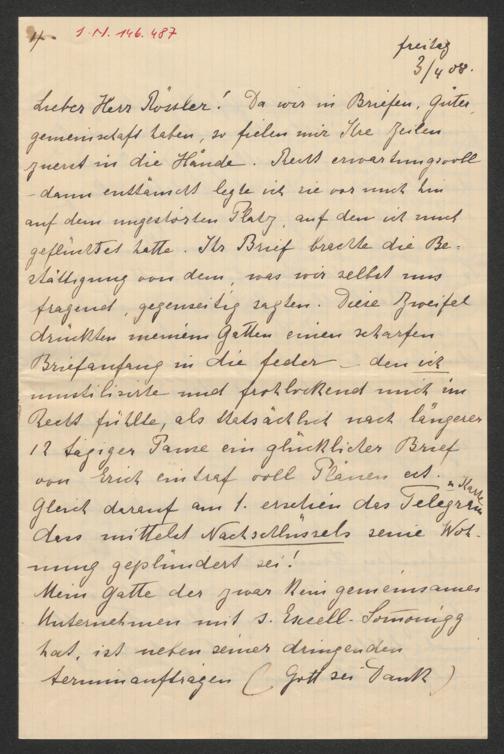 1.
I.N. 146.487
freitag
3/4 08.
Lieber Herr Rössler! Da wir in Briefen, Güter-
gemeinschaft haben, so fielen mir Ihre Zeilen
zuerst in die Hände. Recht erwartungsvoll
– dann enttäuscht legte ich sie vor mich hin
auf dem ungestörten Platz, auf den ich mich
geflüchtet hatte. Ihr Brief brachte die Be-
stättigung von dem, was wir selbst uns
fragend, gegenseitig sagten. Diese Zweifel
drückten meinem Gatten einen scharfen
Briefanfang in die feder – den ich
mustilisirte und frohlockend mich im
Recht fühlte, als thatsächlich nach längerer
12 tägiger Pause ein glücklicher Brief
von Erich eintraf voll Plänen ect.
u Karte
Gleich darauf am 1. erschien das Telegram
dass mittelst Nachschlüssels seine Woh-
nung geplündert sei!
Mein Gatte der zwar kein gemeinsames
Unternehmen mit s. Excell.
hat, ist neben seiner dringenden
terminaufträgen (Gott sei Dank)